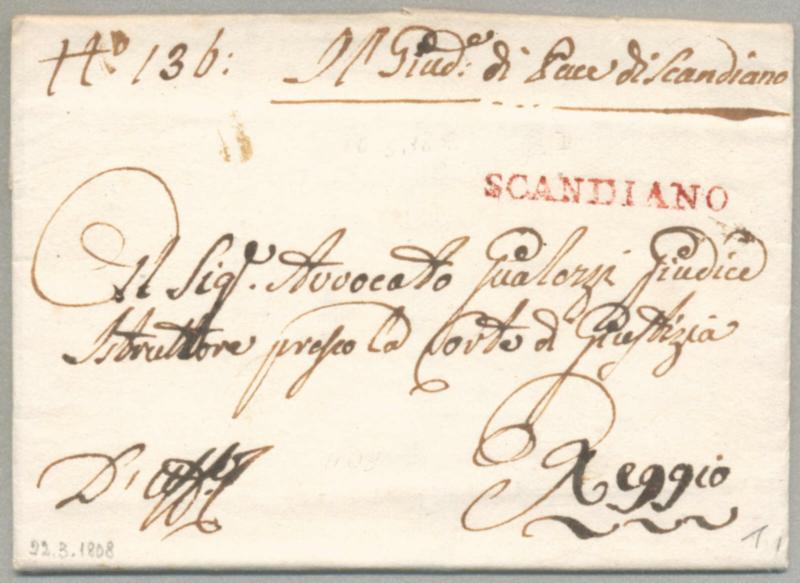 N.º 136: Il Giud.e di Pace di Scandiano
SCANDIANO
Il Sig.r Avvocato Gualozzi Giudice
Istruttore presso la Corte di Giustizia
D'uff.º
Reggio
22.3.1808